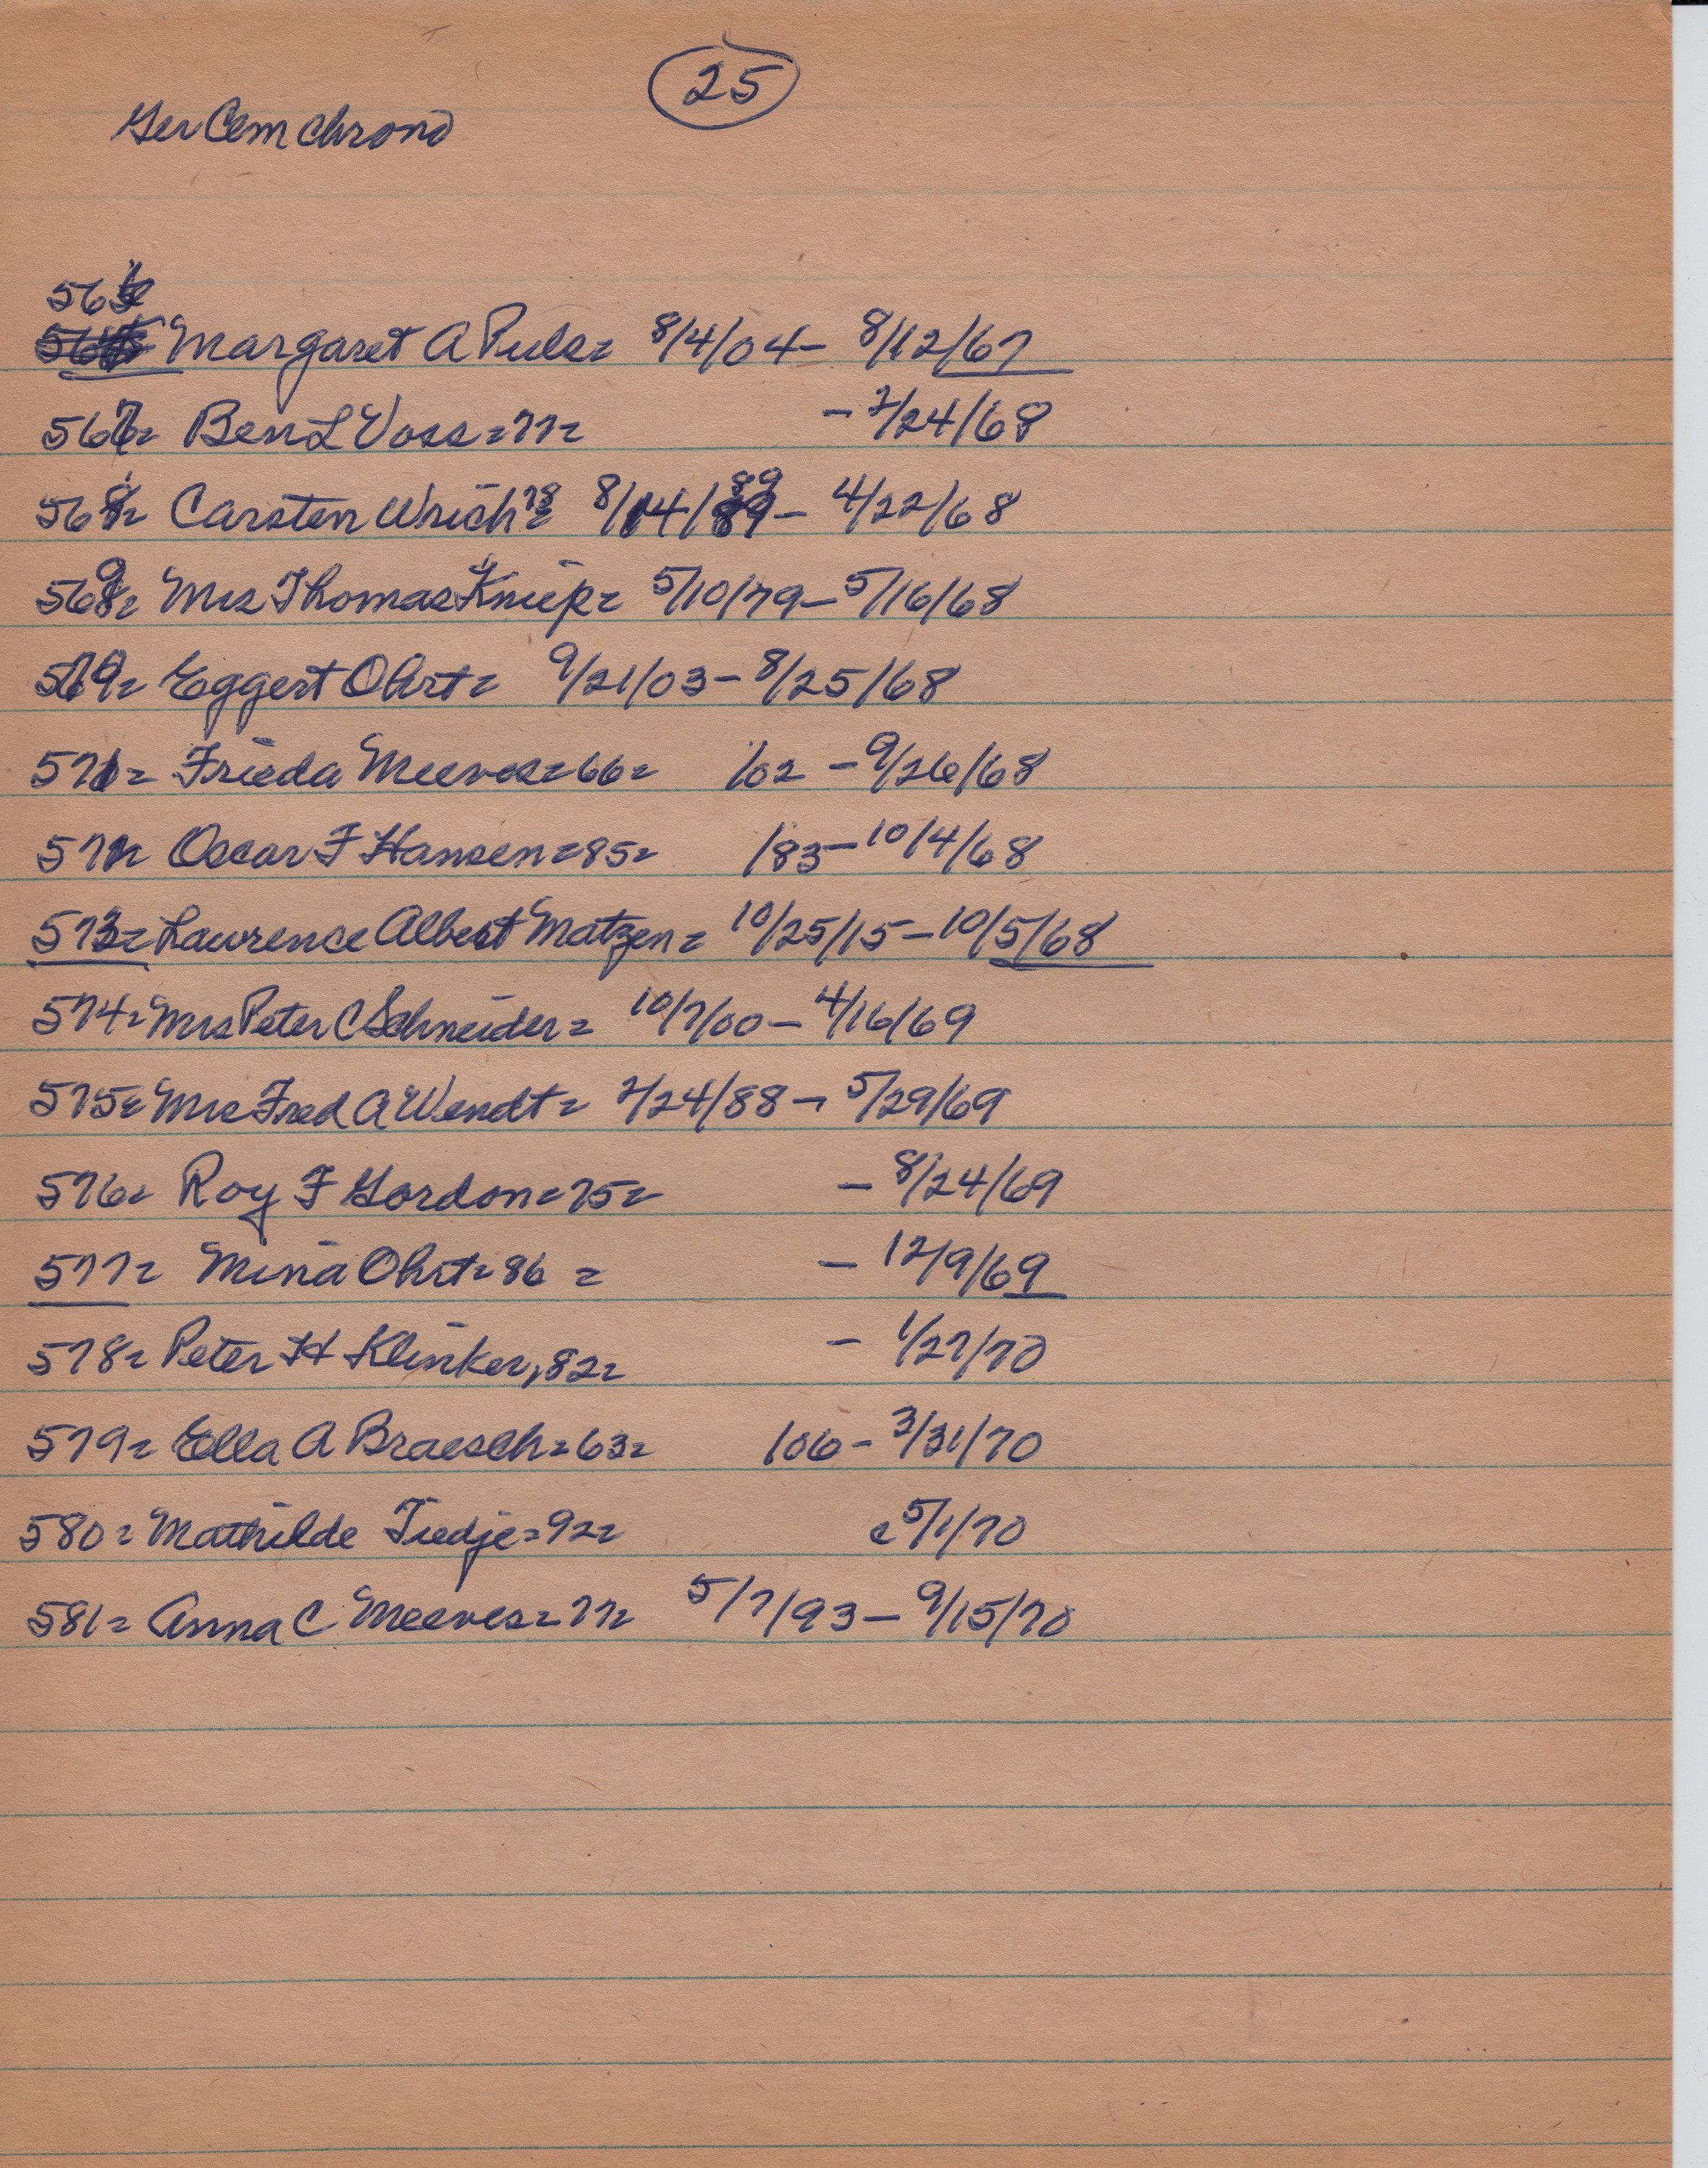 25
Ger Cem Chrono
566
Margaret A Puls= 8/4/04- 8/12/67
567= Ben L Voss=77= - 2/24/68
568= Carsten Wrich 78= 8/14/89 89- 4/22/68
569= Mrs Thomas Kniep= 5/10/79-5/16/68
570= Eggert Ohrt= 9/21/03-8/25/68
571= Frieda Meeves=66= /02 -9/26/68
572= Oscar F Hansen=85= /83-10/4/68
573= Lawrence Albert Matzen= 10/25/15-10/5/68
574= Mrs Peter C Schneider= 10/7/00- 4/16/69
575= Mrs Fred A Wendt= 2/24/88- 5/29/69
576= Roy F Gordon=75= - 8/24/69
577= Mina Ohrt=86 = - 12/9/69
578= Peter H Klinker,82= - 1/27/70
579= Ella A Braesch=63= /06- 3/31/70
580= Mathilde Tiedje=92= 5/1/70
581= Anna C Meeves=77= 5/7/93- 9/15/70